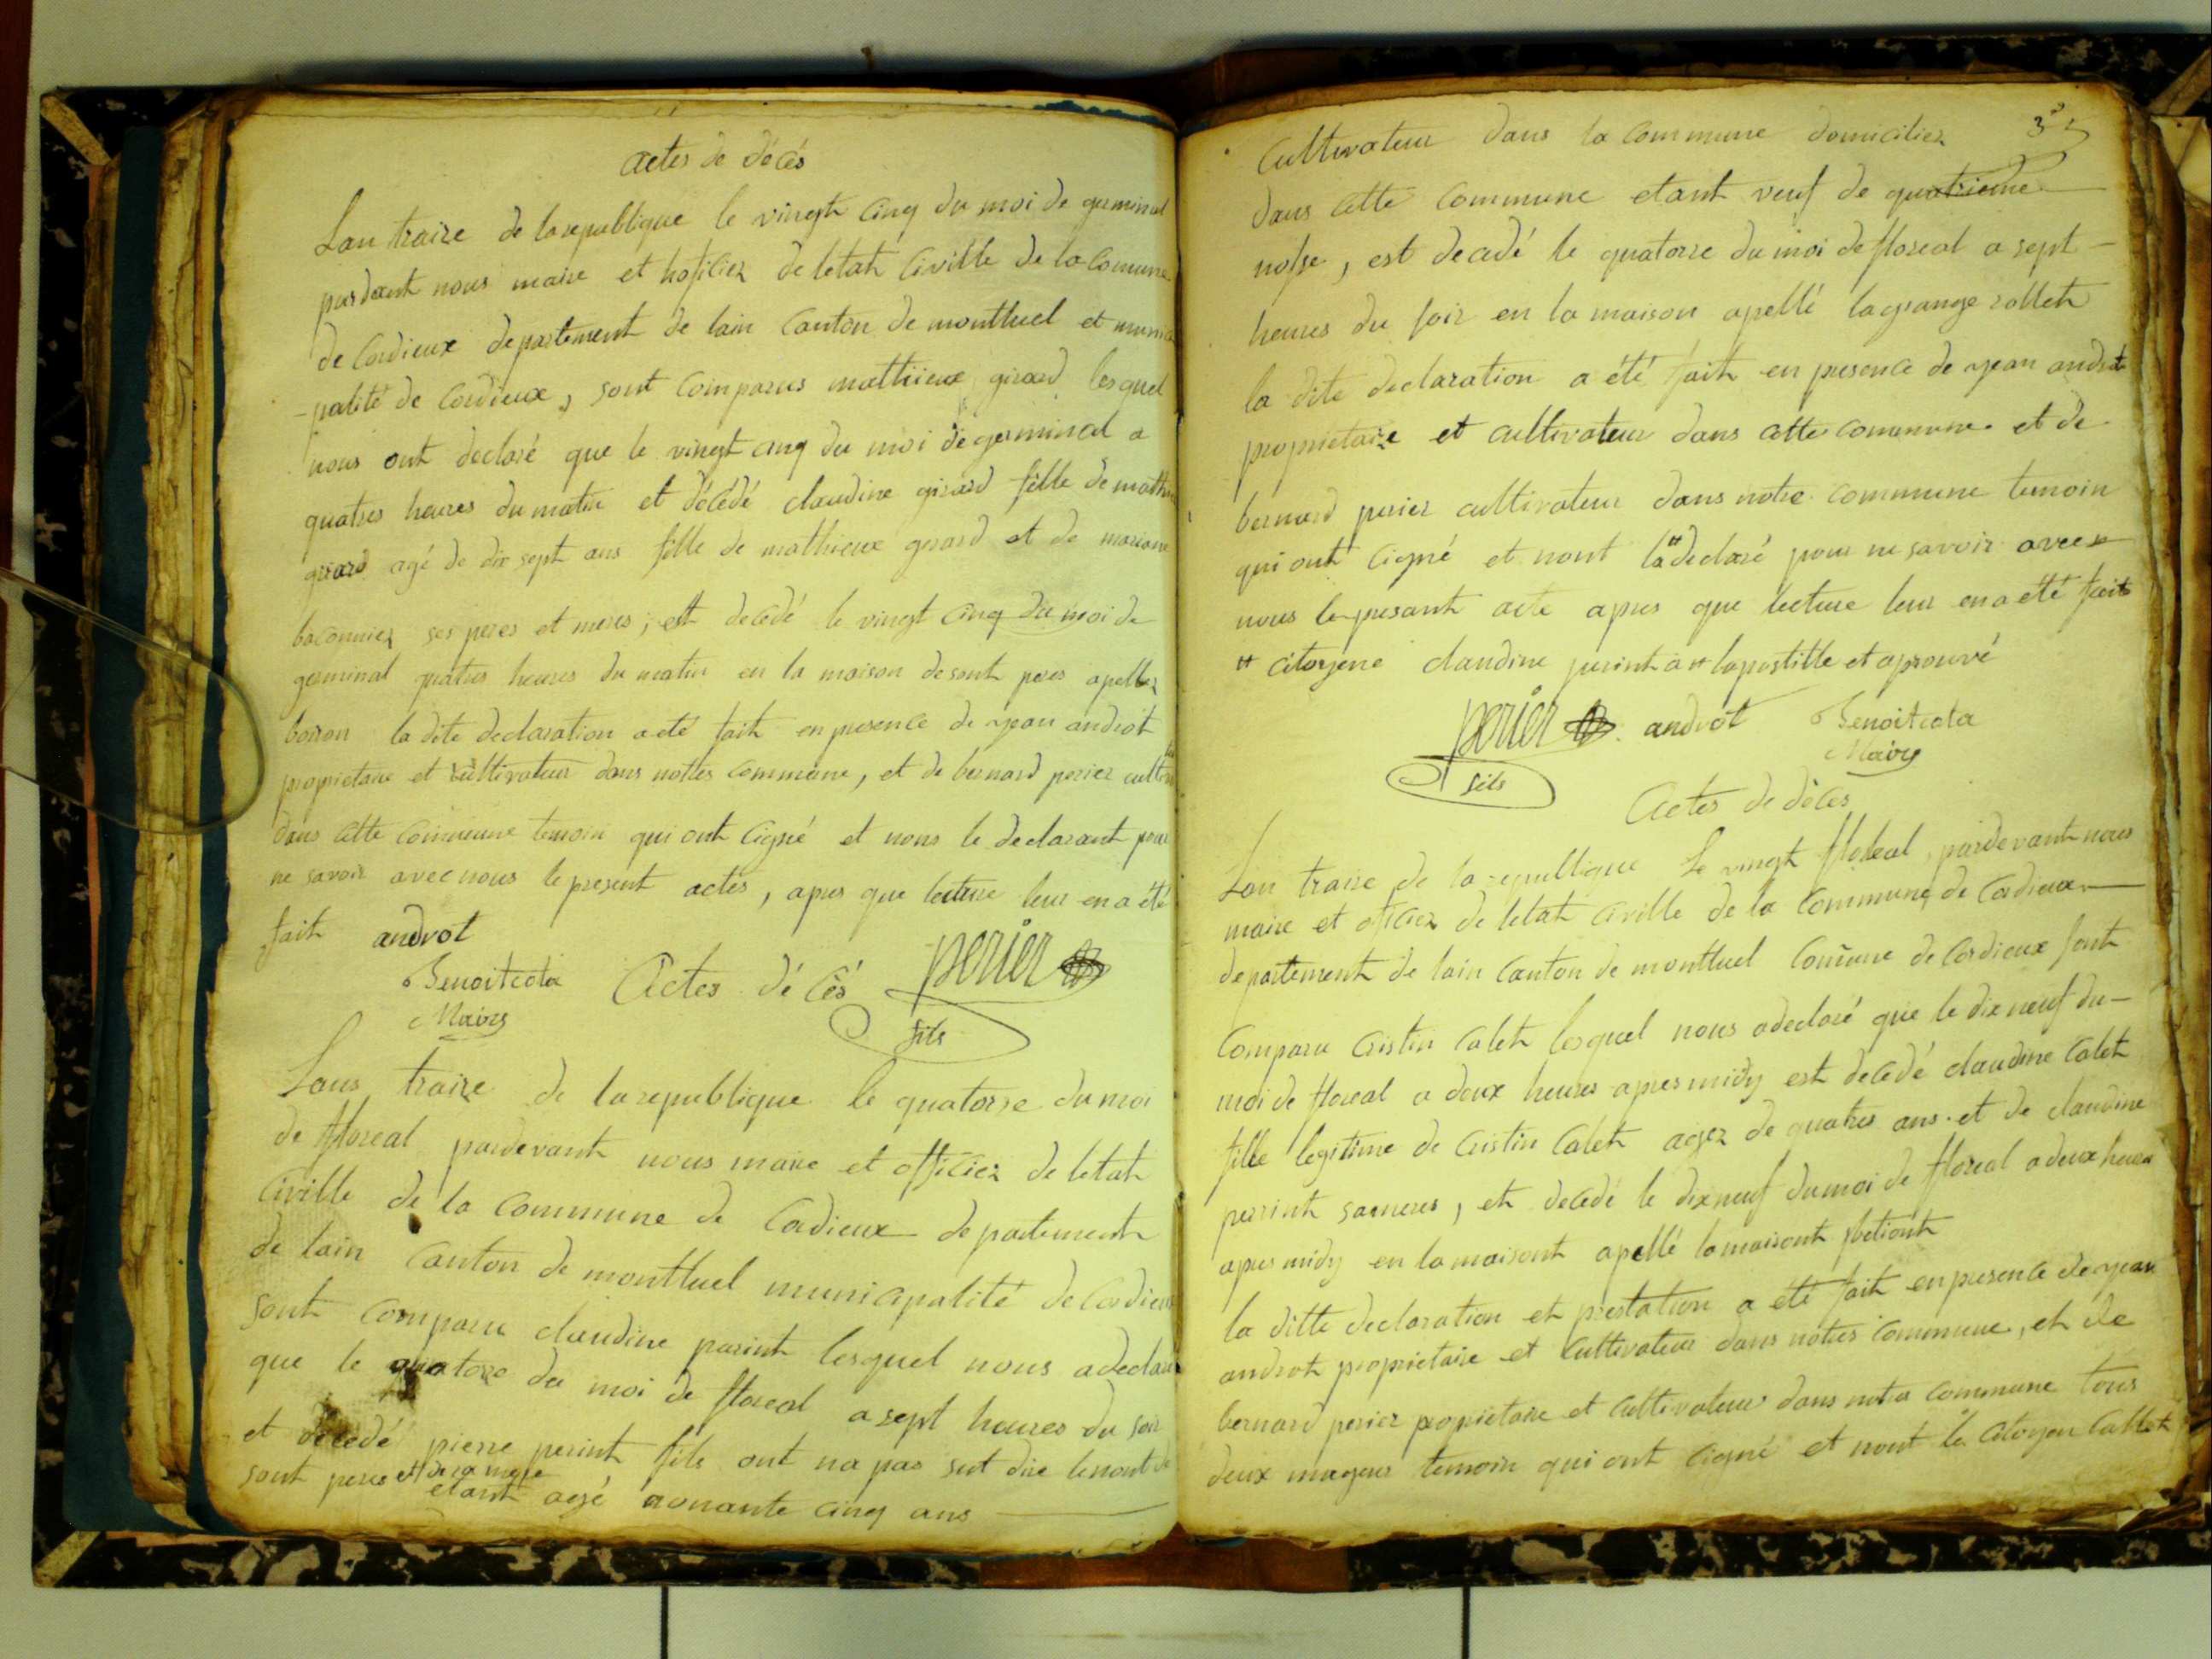 actes de décés
Lan traize de larepublique le vingth cinq du moi de germinal
pardevant nous maire et hoficiez de letath civille de la comune
de Cordieux departement de lain Canton de monttuel et munici
-palité de Cordieux, sont Comparus mathieux girard lesquel
nous ont declaré que le vingt cinq du moi de germinal a
quatres heures du matin et décédé claudine girard fille de mathieu
girard agé de dix sept ans fille de mathieux gerard et de mariane
baconniez ses peres et meres, est decedé le vingt cinq du moi de
germinal quatres heures du matin en la maison desont peres apellez
la dite declaration a eté fait en presence de jean androt
proprietaire et cultivateur dans nottes commune, et de bernard periez cultiva
dans cette commune temoin qui ont cigné et nons le declarant pour
ne savoir avec nous lepresent actes, apres que lecture leur en a été
fait androt
Benoitcota Actes décés perier
Maire fils
Lans traize de larepublique le quatorze du moi
de floreal pardevant nous maire et officiez de letat
Civille de la Commune de Cordieux departementh
de lain Canton de monttuel municipalité de Cordieux
sont Comparu claudine parint lesquel nous a declaré
que le quatorze du moi de floreal a sept heures du soir
et decedé pierre perint fils ont na pas seut dire lenont de
sont peres et de sa mere etant agé nonante cinq ans
35
Cultivateur dans la Commune domiciliez
dans cette Commune etant veuf de quatrieme
nosse, est decedé le quatorze du moi de floreal a sept
heures du soir en la maison apellé lagrange rolleth
la dite declaration a été fait en presence de jean androt
proprietaire et cultivateur dans cette commune et de
bernard periez cultivateur dans notre commune temoin
qui ont cigné et nont la # declaré pour ne savoir avec
nous le presant acte apres que lecture leur en a été fait
# citoyene claudine perint a # lapostille et aprouvé
perier androt Benoitcota
fils Maire
Actes de décés
Lan traize de la republlique Le vingt floreal pardevant nous
maire et oficiez de letath Civille de la Commune de Cordieux
departement de lain Canton de monttuel Comune de Cordieux sont
Comparu Cristin Caleth lesquel nous a declaré que le dix neuf du
moi de floreal a deux heures apres midy est decedé claudine Calet
fille legitime de Cristin Caleth agez de quatres ans et de claudine
perrinth sa meres, et decedé le dix neuf du moi de floreal a deux heures
apres midy en la maisont apellé la maisont
la ditte declaration et prestation a été fait en presence de jean
androt proprietaire et Cultivateur dans notres commune, et de
bernard periez proprietaire et Cultivateur dans notre commune tous
deux mageurs temoin qui ont cigné et nont le Citoyen Calleth